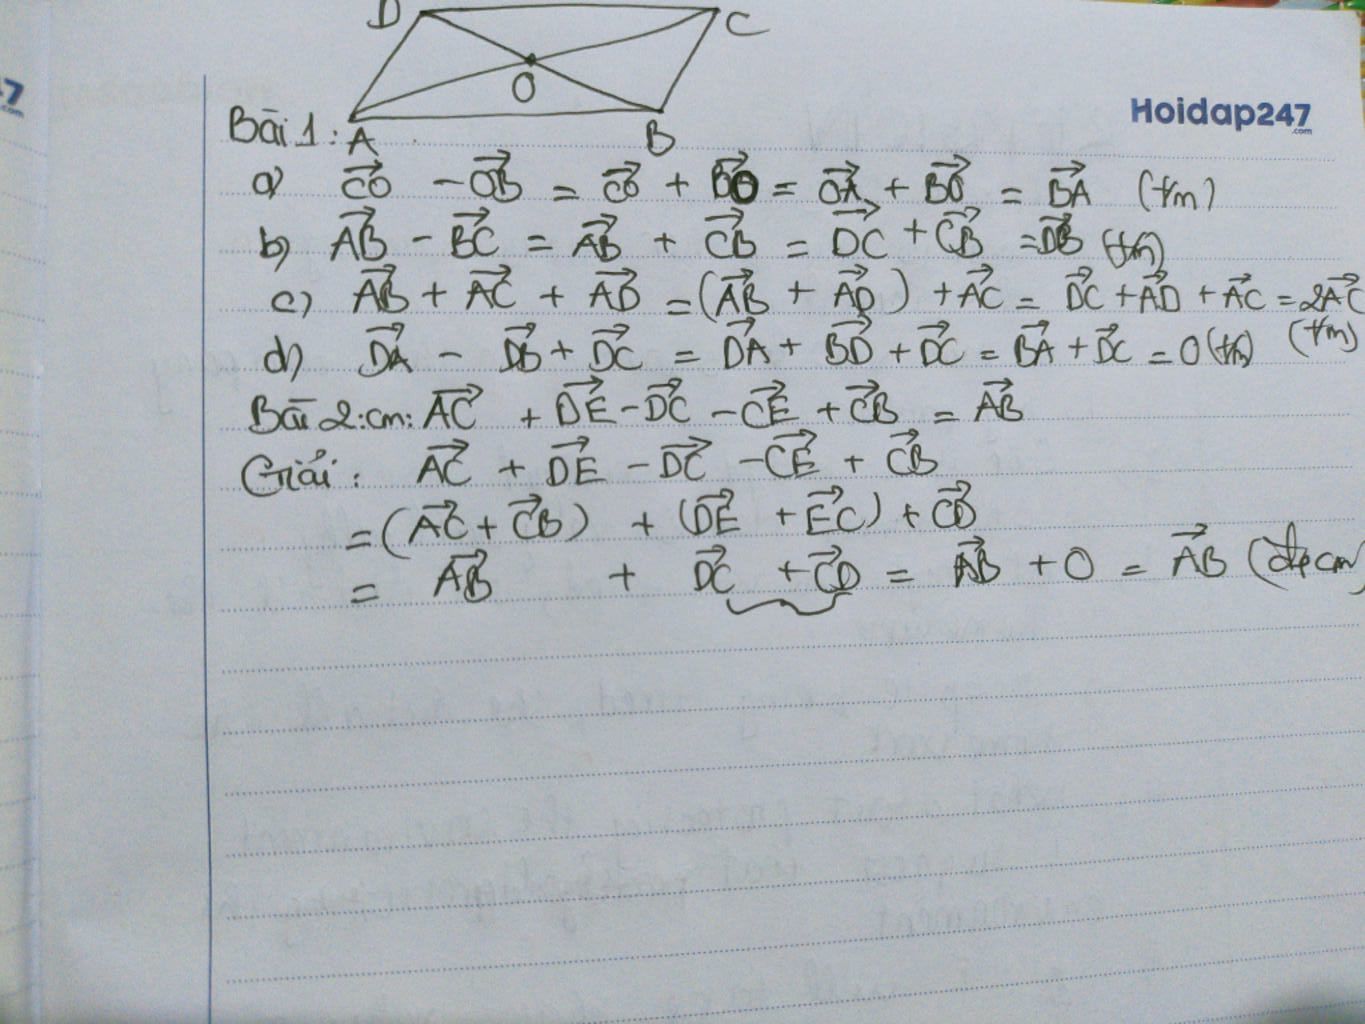 D C
O
47
.com
Hoidap247
.com
Bài 1: A B
a) \overrightarrow{CO} - \overrightarrow{OB} = \overrightarrow{CO} + \overrightarrow{BO} = \overrightarrow{OA} + \overrightarrow{BO} = \overrightarrow{BA} (t/m)
b) \overrightarrow{AB} - \overrightarrow{BC} = \overrightarrow{AB} + \overrightarrow{CB} = \overrightarrow{DC} + \overrightarrow{CB} = \overrightarrow{DB} (t/m)
c) \overrightarrow{AB} + \overrightarrow{AC} + \overrightarrow{AD} = (\overrightarrow{AB} + \overrightarrow{AD}) + \overrightarrow{AC} = \overrightarrow{DC} + \overrightarrow{AD} + \overrightarrow{AC} = 2\overrightarrow{AC}
(t/m)
d) \overrightarrow{DA} - \overrightarrow{DB} + \overrightarrow{DC} = \overrightarrow{DA} + \overrightarrow{BD} + \overrightarrow{DC} = \overrightarrow{BA} + \overrightarrow{DC} = 0 (t/m)
Bài 2: cm: \overrightarrow{AC} + \overrightarrow{DE} - \overrightarrow{DC} - \overrightarrow{CE} + \overrightarrow{CB} = \overrightarrow{AB}
Giải: \overrightarrow{AC} + \overrightarrow{DE} - \overrightarrow{DC} - \overrightarrow{CE} + \overrightarrow{CB}
= (\overrightarrow{AC} + \overrightarrow{CB}) + (\overrightarrow{DE} + \overrightarrow{EC}) + \overrightarrow{CD}
= \overrightarrow{AB} + \overrightarrow{DC} + \overrightarrow{CD} = \overrightarrow{AB} + 0 = \overrightarrow{AB} (đpcm)